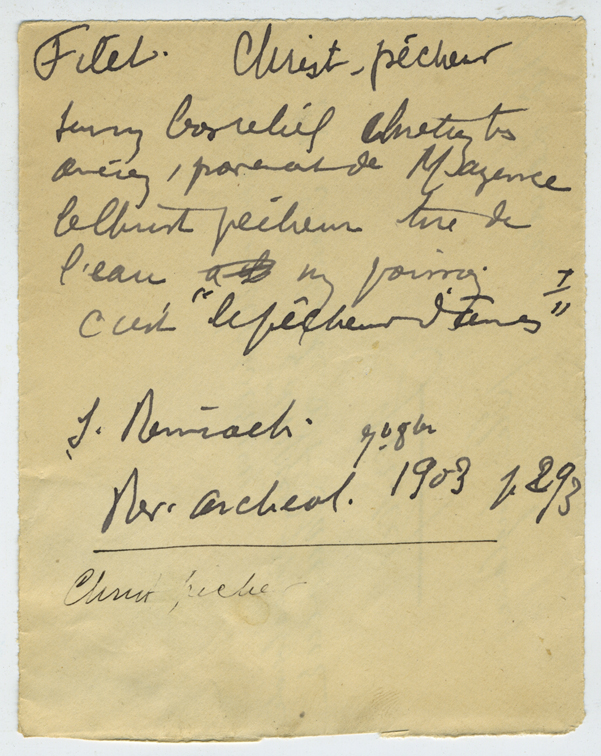 Filet. Christ-pêcheur
sur un bas relief chrétien très
ancien, provenant de Mayence
le Christ pêcheur tire de
l'eau un poisson
c'est "le pêcheur d'âmes"
S. Reinach.
Rev. archéol. 1903 p. 293
Christ pêcheur